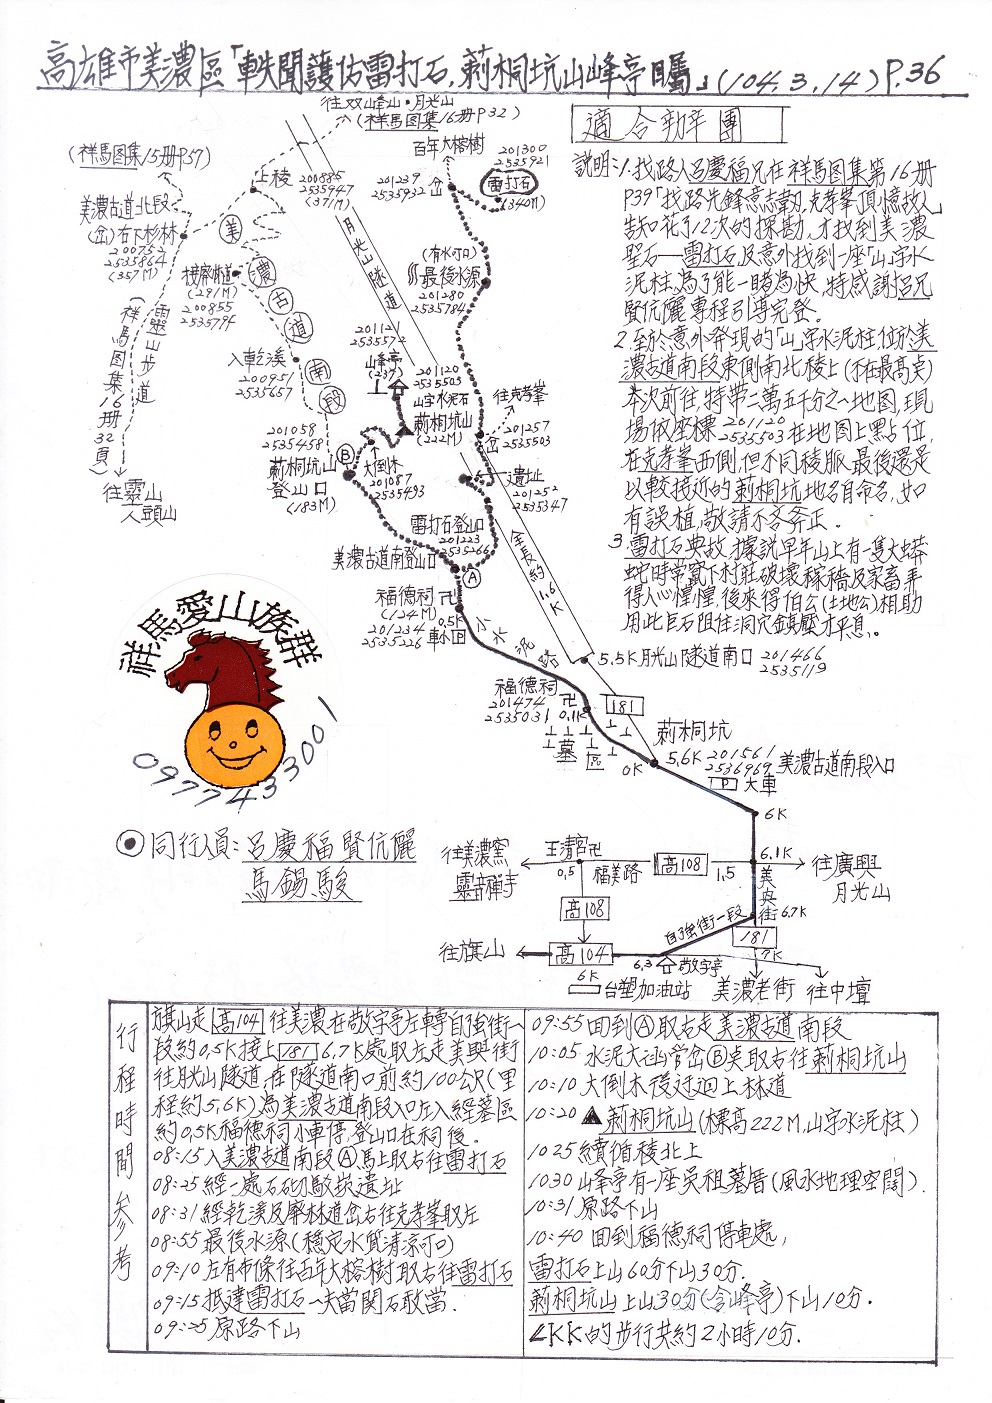 高雄市美濃區「軼聞護估雷打石,莿桐坑山峰亭矚」(104.3.14) P.36
往双峰山·月光山
(祥馬图集16册P32)
適合勁牟團
(祥馬图集15册P57)
上稜
200885
2535947
(371M)
百年大榕樹
201300
2535921
201239
2535932
岔
雷打石
(340M)
美濃古道北段
(岔)右下杉林
200752
2535864
(357M)
美濃古道南段
接廢林道
(291M)
200855
2535794
靈山步道
(祥馬图集16册32頁)
往靈山
人頭山
月光山隧道
(有水可口)
最後水源
201280
2535784
入乾溪
200951
2535657
201121
2535572
山峰亭
(237)
201120
2535503
山字水泥石
莿桐坑山
(222M)
往克孝峯
201257
2535503
岔
201058
2535458
莿桐坑山
登山口
(183M)
B
大倒木
201087
2535493
遺址
201252
2535347
雷打石登山口
201223
2535266
美濃古道南登山口
A
全長約1.6K
福德祠卍
(124M)
201234
2535226
0.5K
車小回
小水泥路
5.5K月光山隧道南口 201466
2535119
福德祠卍
201474
2535031
0.1K
181
墓區
0K
莿桐坑
5.6K 201561
2536969
美濃古道南段入口
P大車
6K
說明:1.找路人呂慶福兄在祥馬图集第16册
P39「找路先鋒意志韌,克孝峯頂憶故人」
告知花了12次的探勘,才找到美濃
聖石—雷打石及意外找到一座「山」字水
泥柱,為了能一睹為快,特感謝呂兄
賢伉儷專程引導完登。
2.至於意外發現的「山」字水泥柱,位於美
濃古道南段東側南北稜上(不在最高点)
本次前往,特帶二萬五千分之一地图,現
場依座標 201120
2535503 在地图上點位,
在克孝峯西側,但不同稜脈,最後還是
以較接近的莿桐坑地名自命名,如
有誤植,敬請不吝斧正.
3.雷打石典故,據說早年山上有一隻大蟒
蛇時常竄下村莊破壞稼穡及家畜弄
得人心惶惶,後來得伯公(土地公)相助
用此巨石阻住洞穴鎮壓才平息。
祥馬愛山族群
0977433001
同行人員:呂慶福賢伉儷
馬錫駿
往美濃窯
靈音禪寺
玉清宮卍
0.5
福美路
高108
1.5
6.1K
往廣興
月光山
高108
美興街
6.7K
自強街一段
181
7K
往旗山
高104
6K
6.3
敬字亭
台塑加油站
美濃老街
往中壇
行程時間參考
旗山走高104往美濃在敬字亭左轉自強街一
段約0.5K接上181 6.7K處取左走美興街
往月光山隧道,在隧道南口前約100公尺(里
程約5.6K)為美濃古道南段入口左入經墓區
約0.5K福德祠小車停,登山口在祠後.
08:15入美濃古道南段Ⓐ馬上取右往雷打石
08:25經一處石砌駁崁遺址
08:31經乾溪及廢林道岔右往克孝峯取左
08:55最後水源(穩定水質清涼可口)
09:10左有布條往百年大榕樹取右往雷打石
09:15抵達雷打石一夫當関石敢當.
09:25原路下山
09:55回到Ⓐ取右走美濃古道南段
10:05水泥大涵管岔Ⓑ点取右往莿桐坑山
10:10大倒木後迂迴上林道
10:20▲莿桐坑山(標高222M,山字水泥柱)
1025續循稜北上
1030山峰亭有一座吳祖墓厝(風水地理空間).
10:31原路下山
10:40回到福德祠停車處,
雷打石上山60分下山30分.
莿桐坑山上山30分(含山峰亭)下山10分.
LKK的步行共約2小時10分.